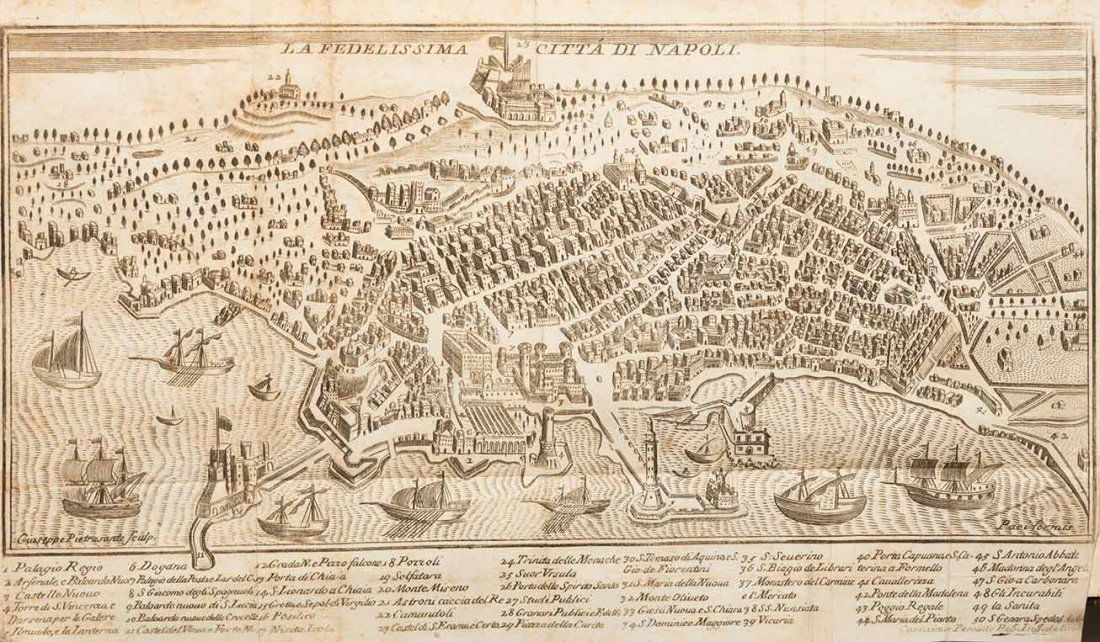 LA FEDELISSIMA CITTÁ DI NAPOLI.
22
23
18
2
41
42
Giuseppe Pietrasante Sculp.
1 Palagio Regio
2 Arsenale, e
3 Castello Nuovo
4 Torre di S. Vincenzo, e
Darsena per le Galere
e, la Lanterna
6 Dogana
7 Palagio della
8 S. Giacomo degli Spagnuoli
9 Baloardo nuovo di S. Lucia
10 Baloardo nuovo delle Crocelle
11 Castel del
13 Porta di Chiaia
14 S. Lionardo a Chiaia
15 Grotta, e Sepol. di Vergilio
16 Posilico
17 Nisita Isola
18 Pozzoli
19 Solfatara
20 Monte Miseno
21 Astroni caccia del Re
22 Camandoli
23 Castel di S. Eramo, e Certo.
24 Trinita delle Monache
25 Suor Vrsula
26 Porta dello Spirito Santo
27 Studi Publici
28 Granari Publici, e F. delle
29 Piazza della Carita
30 S. Tomaso di Aquina, e S.
Gio de Fiorentini
31 S. Maria della Nuova
32 Monte Oliveto
33 Giesù Nuovo, e S. Chiara
34 S. Dominico Maggiore
35 S. Severino
36 S. Biagio de Librari
37 Monastero del Carmine
e l Mercato
38 SS. Nunziata
39 Vicaria
40 Porta Capuana, e S. Ca-
terina a Formello
41 Cavallerizza
42 Ponte della Madalena
43 Poggio Regale
44 S. Maria del Pianto
45 S. Antonio Abbate
46 Madonna degl'Angeli
47 S. Gio a Carbonara
48 Gli Incurabili
49 la Sanita
50 S. Genaro Spedal.